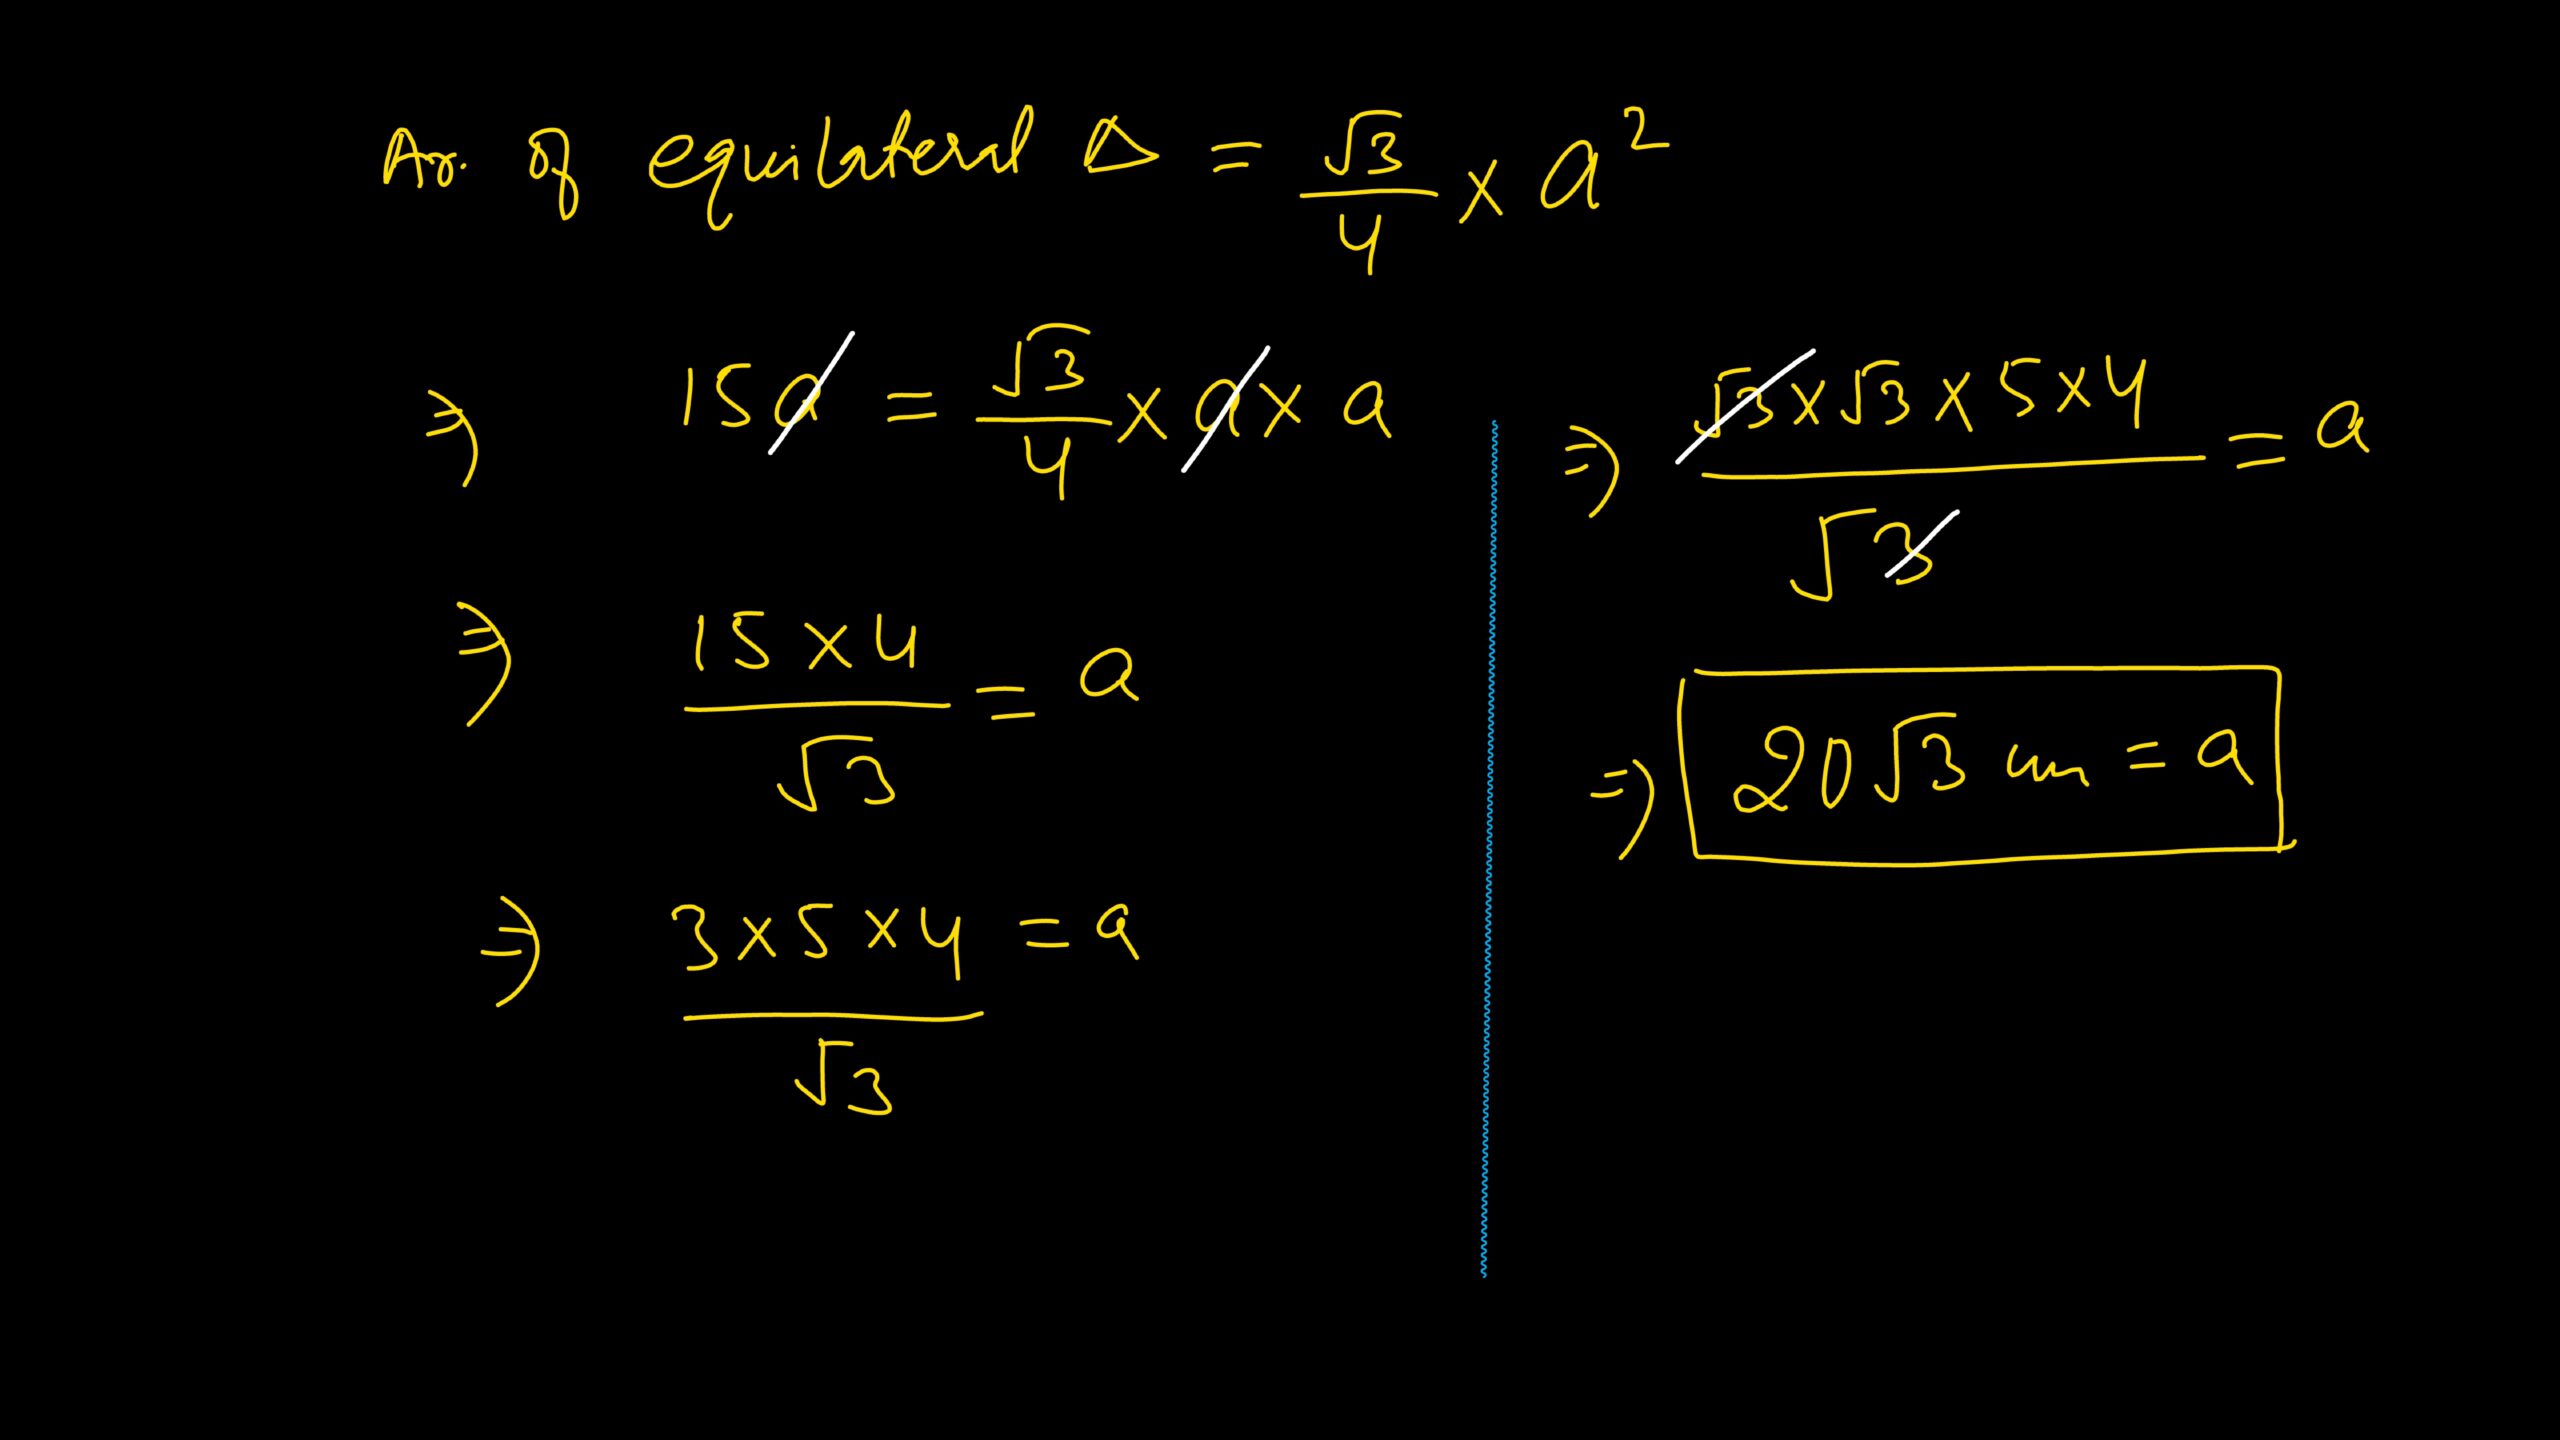 Ar. of equilateral Δ = √3/4 × a²
⇒ 15a = √3/4 × a × a
⇒ 15×4/√3 = a
⇒ 3×5×4/√3 = a
⇒ √3×√3×5×4/√3 = a
⇒ 20√3 cm = a